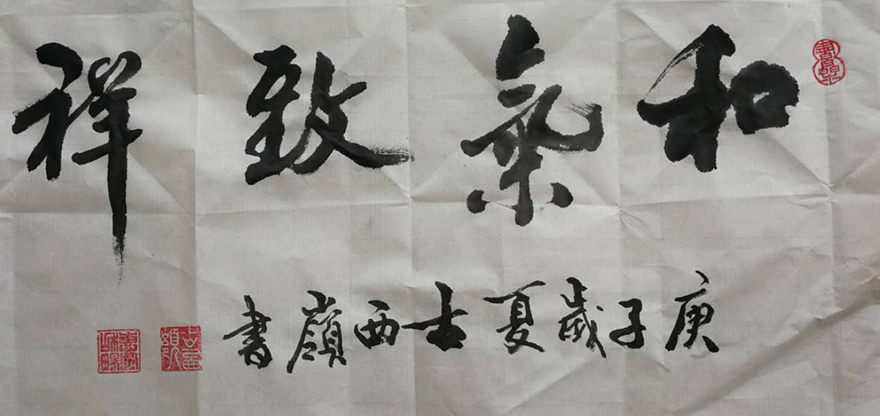 和氣致祥
庚子歲夏古西嶺書